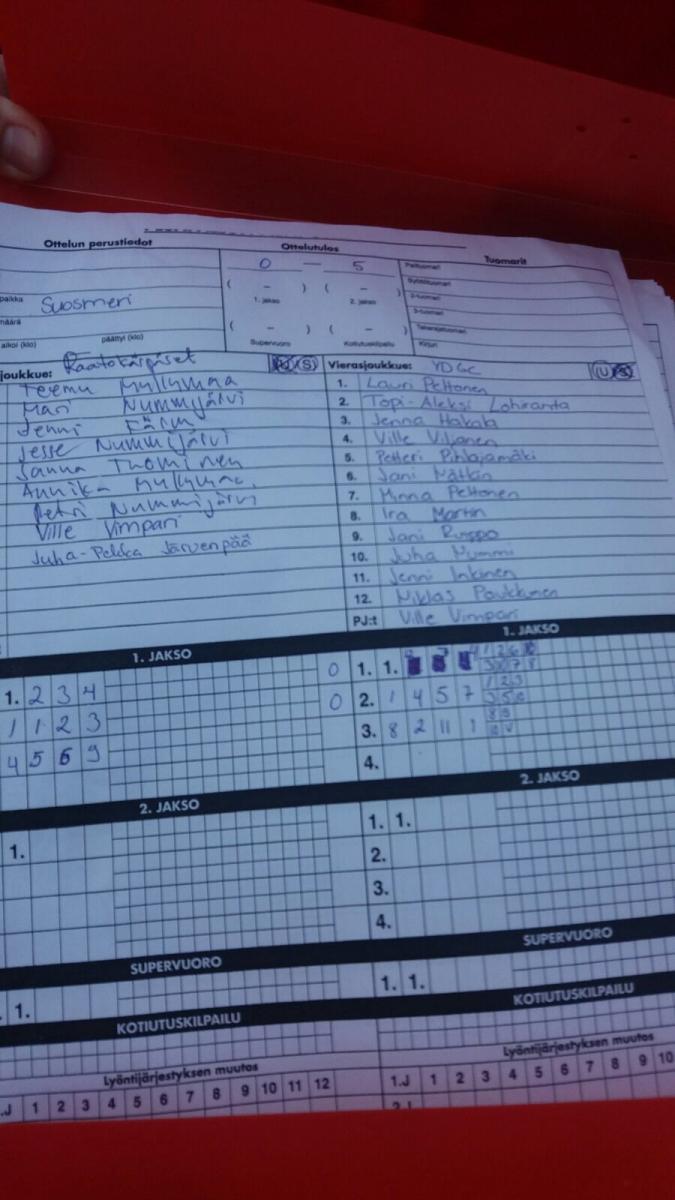 Ottelun perustiedot
Ottelutulos
Tuomarit
0 — 5
( – ) ( – )
1. jakso 2. jakso
( – ) ( – )
Supervuoro Kotiutuskilpailu
Pelituomari
Syöttötuomari
2-tuomari
3-tuomari
Takarajatuomari
Kirjuri
paikka Suosmeri
määrä
alkoi (klo) päättyi (klo)
joukkue: Raatokärpäset
Teemu Myllymaa
Mari Nummijärvi
Jenni Färm
Jesse Nummijärvi
Sanna Tuominen
Annika Myllymaa
Petri Nummijärvi
Ville Vimpari
Juha-Pekka Järvenpää
Vierasjoukkue: YDGC
1. Lauri Peltonen
2. Topi-Aleksi Lohiranta
3. Jenna Hakala
4. Ville Viljanen
5. Petteri Pihlajamäki
6. Jani Mätkin
7. Minna Peltonen
8. Ira Martin
9. Jani Ruippo
10. Juha Nummi
11. Jenni Inkinen
12. Niklas Paukkunen
PJ:t Ville Vimpari
1. JAKSO
1. 2 3 4
1 1 2 3
4 5 6 9
1. JAKSO
0 1. 1.
0 2. 1 4 5 7
3. 8 2 11 1
4.
2. JAKSO
1.
2. JAKSO
1. 1.
2.
3.
4.
SUPERVUORO
1.
SUPERVUORO
1. 1.
KOTIUTUSKILPAILU
KOTIUTUSKILPAILU
Lyöntijärjestyksen muutos
.J 1 2 3 4 5 6 7 8 9 10 11 12
Lyöntijärjestyksen muutos
1.J 1 2 3 4 5 6 7 8 9 10